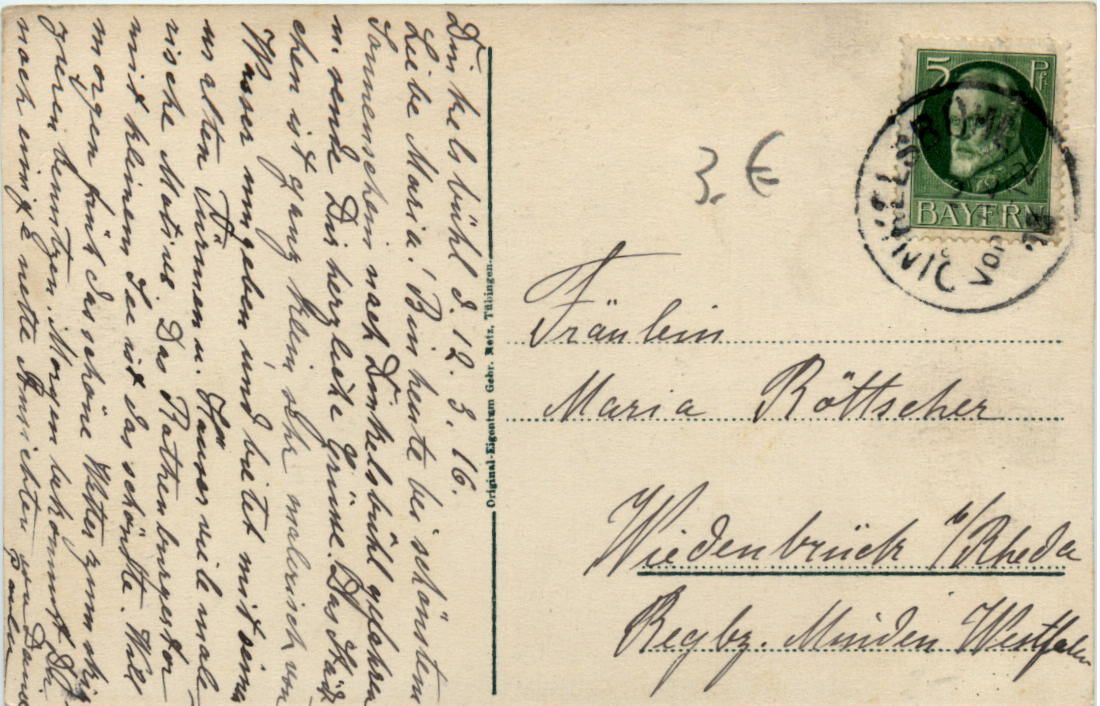 Dinkelsbühl d. 12. 3. 16.
Liebe Maria! Bin heute bei schönstem
Sonnenschein nach Dinkelsbühl gefahren
u. sende Dir herzliche Grüsse. Das Städt
chen ist ganz klein sehr malerisch von
Wasser umgeben und bietet mit seinen
uralten Türmen u. Häuser viele male
rische Motive. Das Rothenburgertor
mit kleinem See ist das schönste. Will
morgen früh das schöne Wetter zum skiz
zieren benutzen. Morgen bekommst Du
noch einige nette Ansichten von Deiner
Original-Eigentum Gebr. Metz, Tübingen.
3. €
5 Pf
BAYERN
DINKELSBÜHL
VOR
Fräulein
Maria Röttscher
Wiedenbrück b/Rheda
Regbz. Minden Westfalen